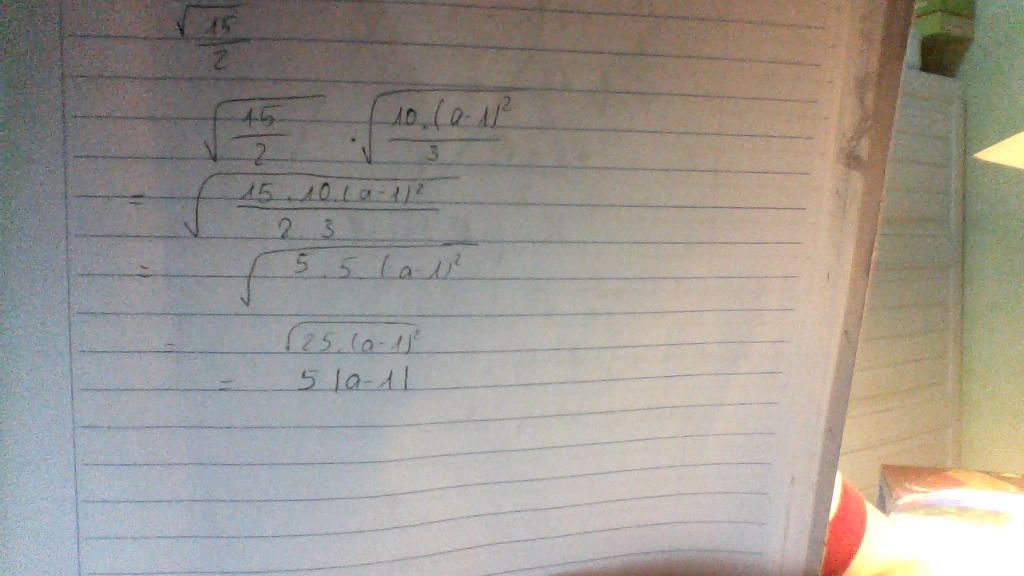 √15/2
√15/2 · √10.(a-1)²/3
= √15.10.(a-1)²/2 3
= √5.5.(a-1)²
= √25.(a-1)²
= 5|a-1|